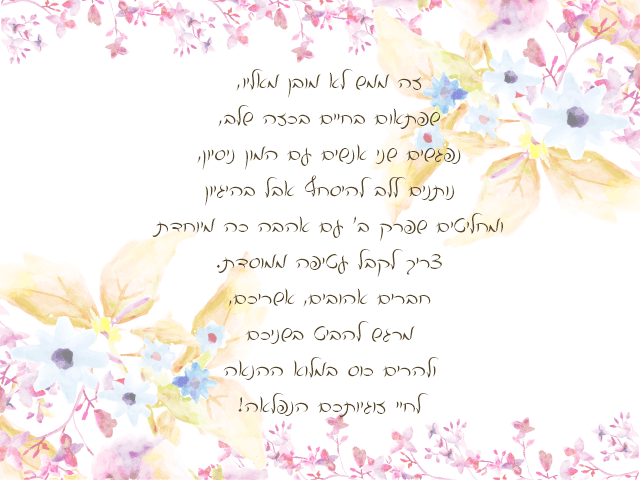 זה ממש לא מובן מאליו,
שפתאום בחיים בכזה שלב,
נפגשים שני אנשים עם המון ניסיון,
נותנים ללב להיסחף אבל בהיגיון
ומחליטים שפרק ב' עם אהבה כה מיוחדת
צריך לקבל גטיפה ממוסדת.
חברים אהובים, אשריכם,
מרגש להביט בשניכם
ולהרים כוס במלוא ההנאה
לחיי זוגיותכם הנפלאה!